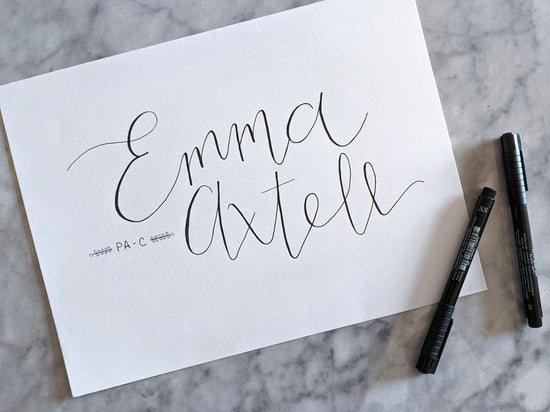 Emma
Axtell
PA-C
XS